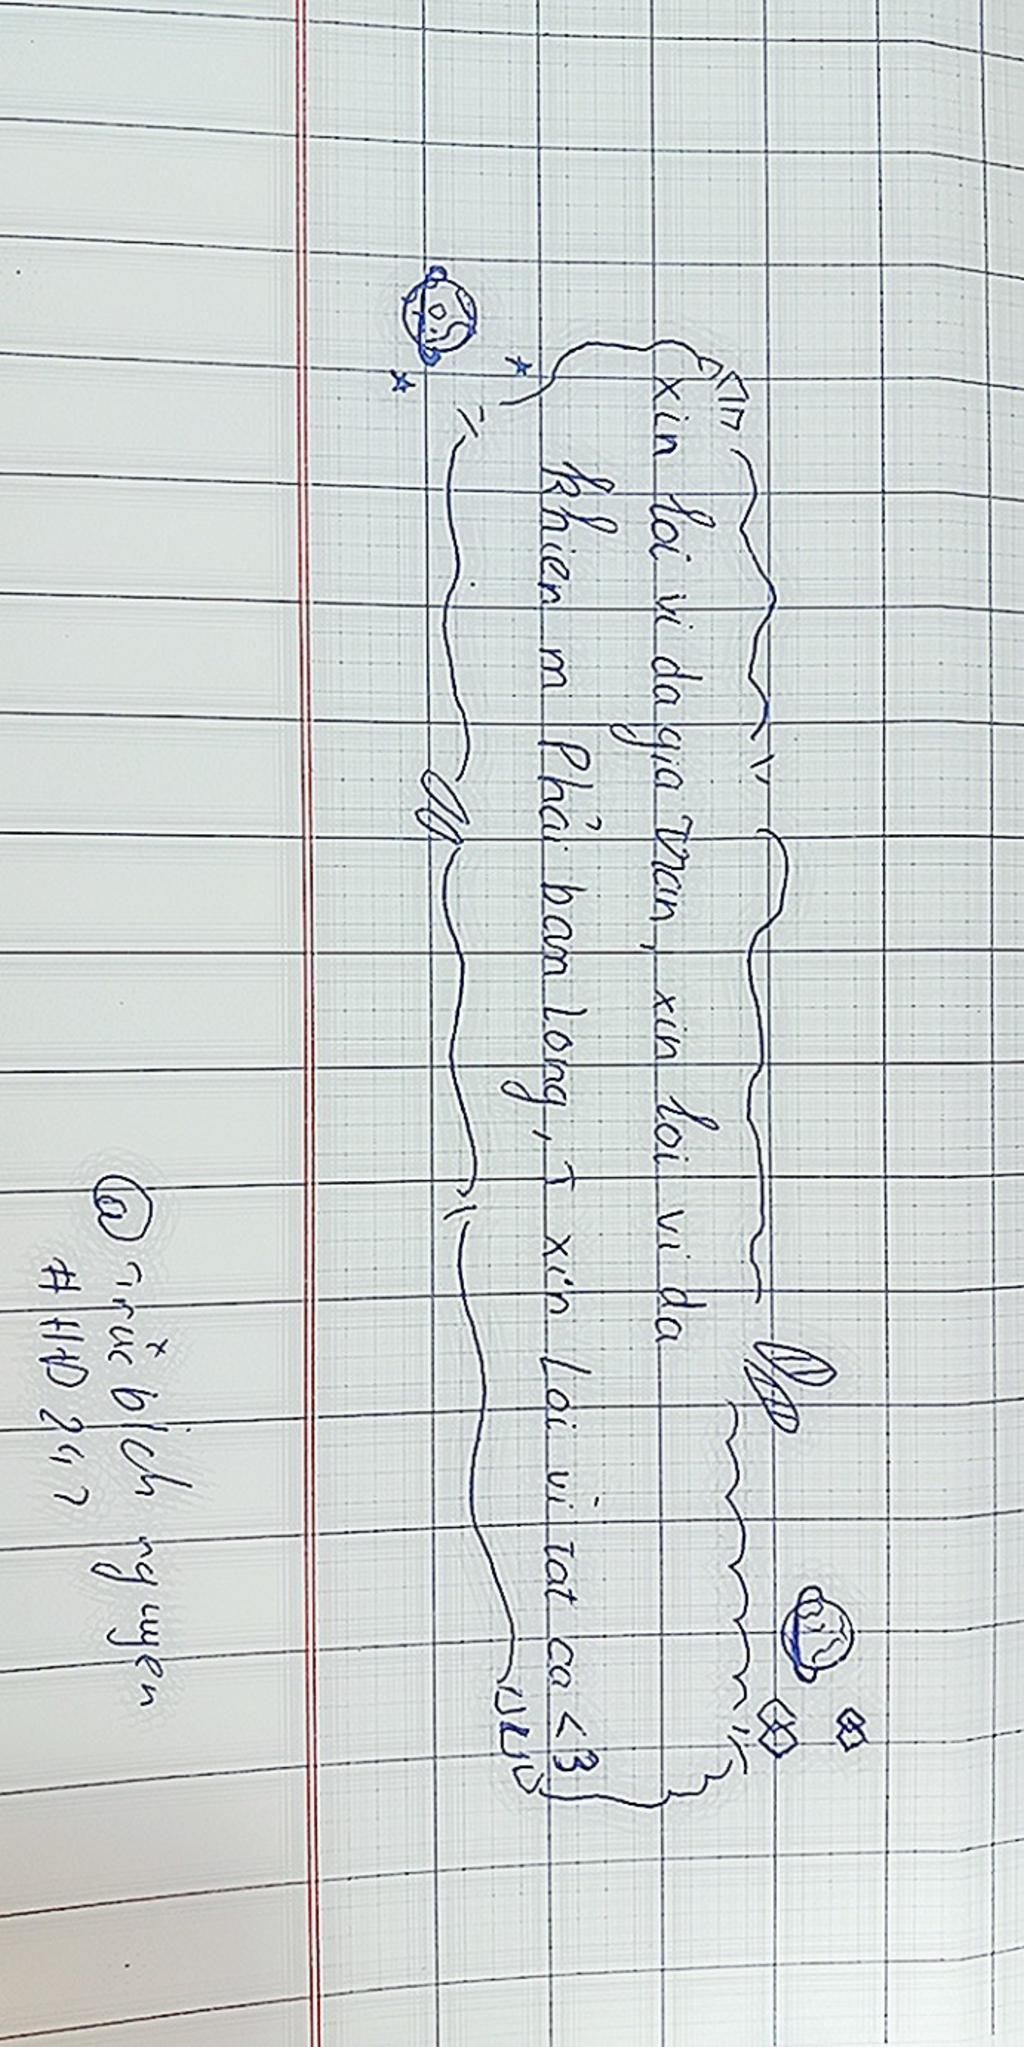 xin loi vi da gia tran, xin loi vi da
khien m Phải bam Long, T xin Loi vì tat ca <3
@ Trúc bích nguyen
# HD 247